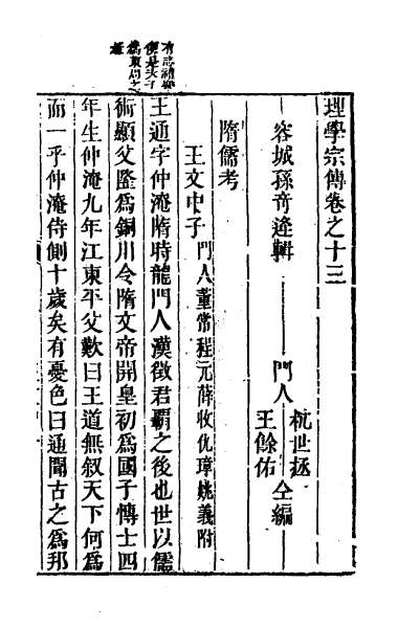 理學宗傳卷之十三
容城孫奇逢輯
門人
杭世拯
王餘佑
仝編
隋儒考
王文中子 門人董常程元薛收仇璋姚義附
王通字仲淹隋時龍門人漢徵君霸之後也世以儒
術顯父隆爲銅川令隋文帝開皇初爲國子博士四
年生仲淹九年江東平父歎曰王道無叙天下何爲
而一乎仲淹侍側十歲矣有憂色曰通聞古之爲邦